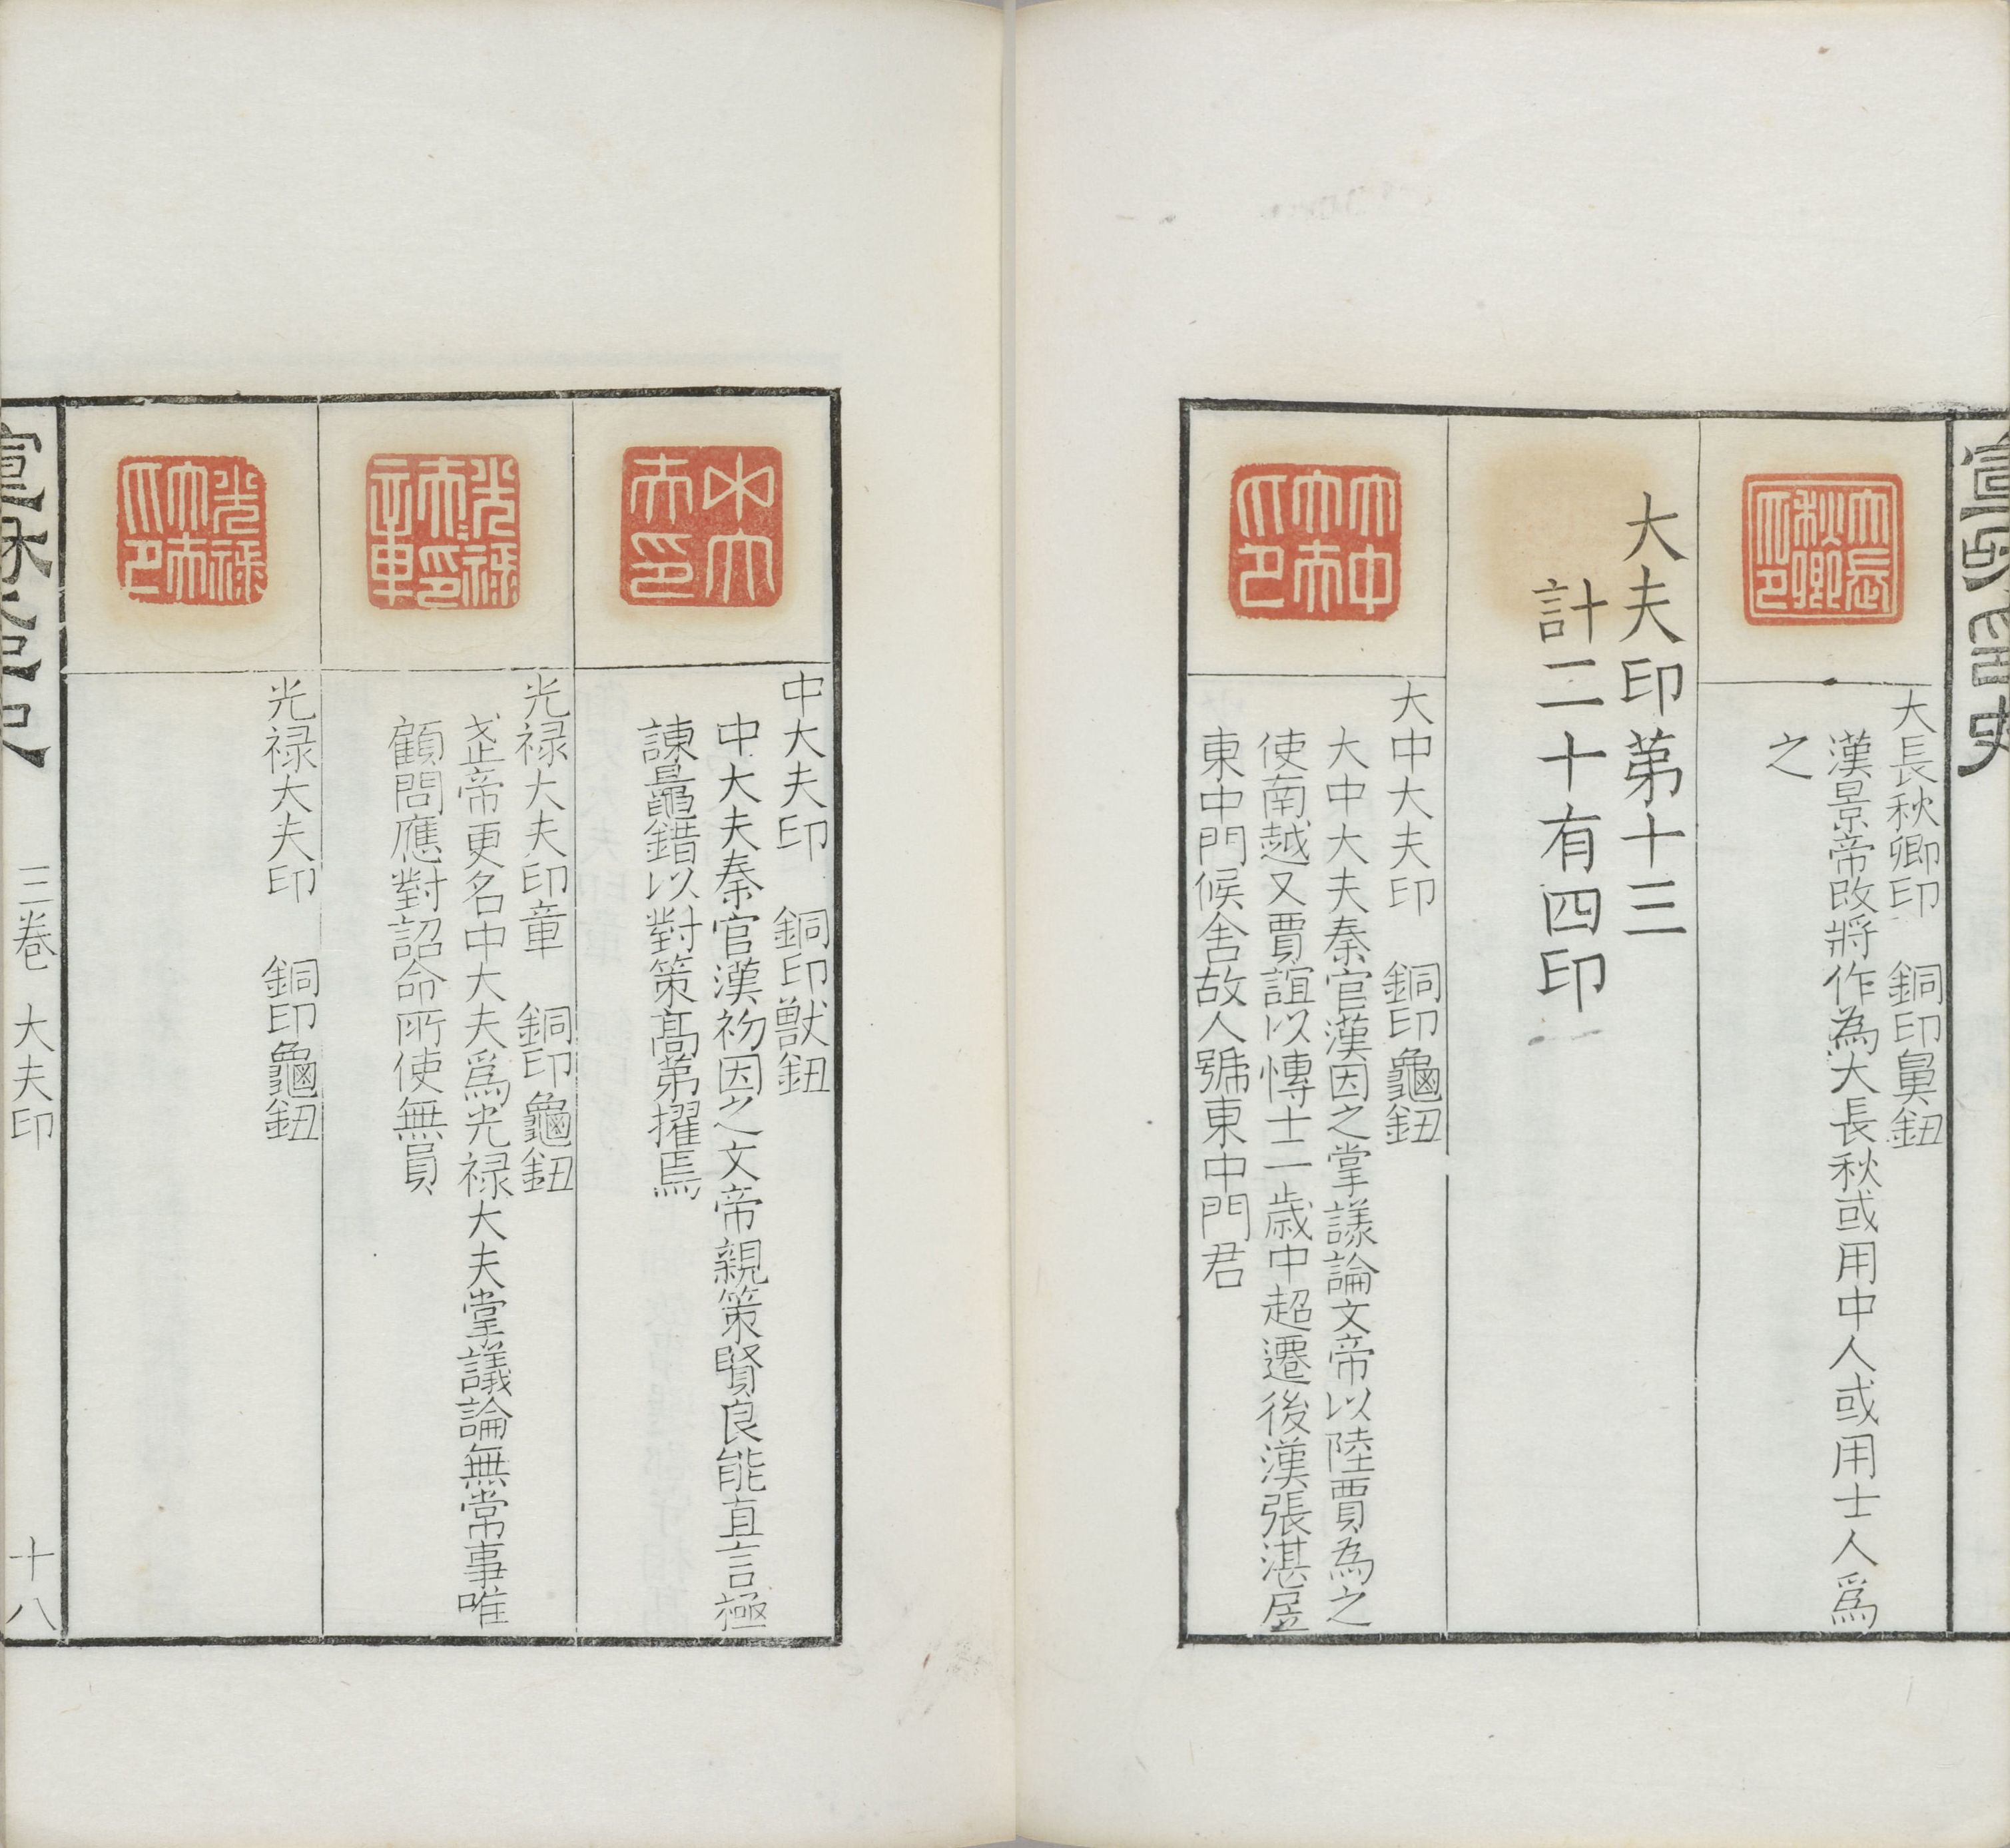 大長秋卿印
大長秋卿印　銅印鼻鈕
漢景帝改將作為大長秋或用中人或用士人爲
之
大夫印第十三
計二十有四印
大中大夫印
大中大夫印　銅印龜鈕
大中大夫秦官漢因之掌議論文帝以陸賈為之
使南越又賈誼以博士一歲中超遷後漢張湛居
東中門候舍故人號東中門君
中大夫印
中大夫印　銅印獸鈕
中大夫秦官漢初因之文帝親策賢良能直言極
諫鼂錯以對策髙第擢焉
光禄大夫印章
光禄大夫印章　銅印龜鈕
武帝更名中大夫爲光禄大夫掌議論無常事唯
顧問應對詔命所使無員
光禄大夫印
光禄大夫印　銅印龜鈕
三卷　大夫印
十八